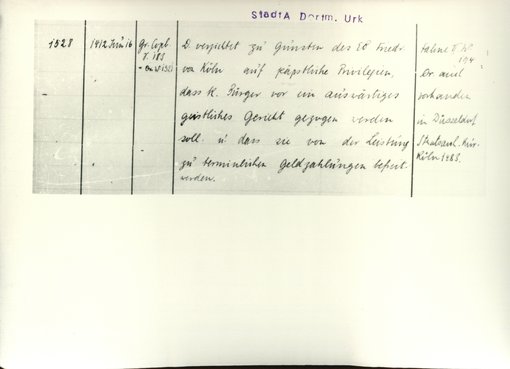 StadtA Dortm. Urk
1528
1412 Juni 16
Gr. Copl.
T. 183
D. verzichtet zu Gunsten des EB Friedr.
von Köln auf päpstliche Privilegien,
dass k. Bürger vor ein auswärtiges
geistliches Gericht gezogen werden
soll. u. dass sie von der Leistung
zu terminlichen Geldzahlungen befreit
werden.
Or. auch
vorhanden
in Düsseldorf,
Staatsarch. Kur-
Köln 1483.